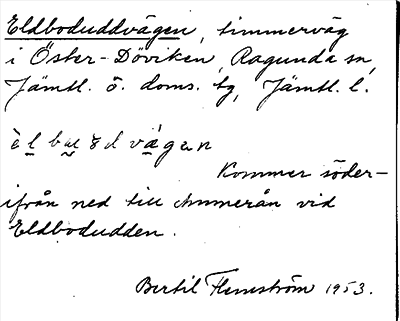 Eldboduddvägen, timmerväg
i Öster-Döviken, Ragunda sn,
Jämtl. ö. doms. tg, Jämtl. l.
vägen
Kommer söder-
ifrån ned till Ammerån vid
Eldbodudden.
Bertil Flemström 1953.